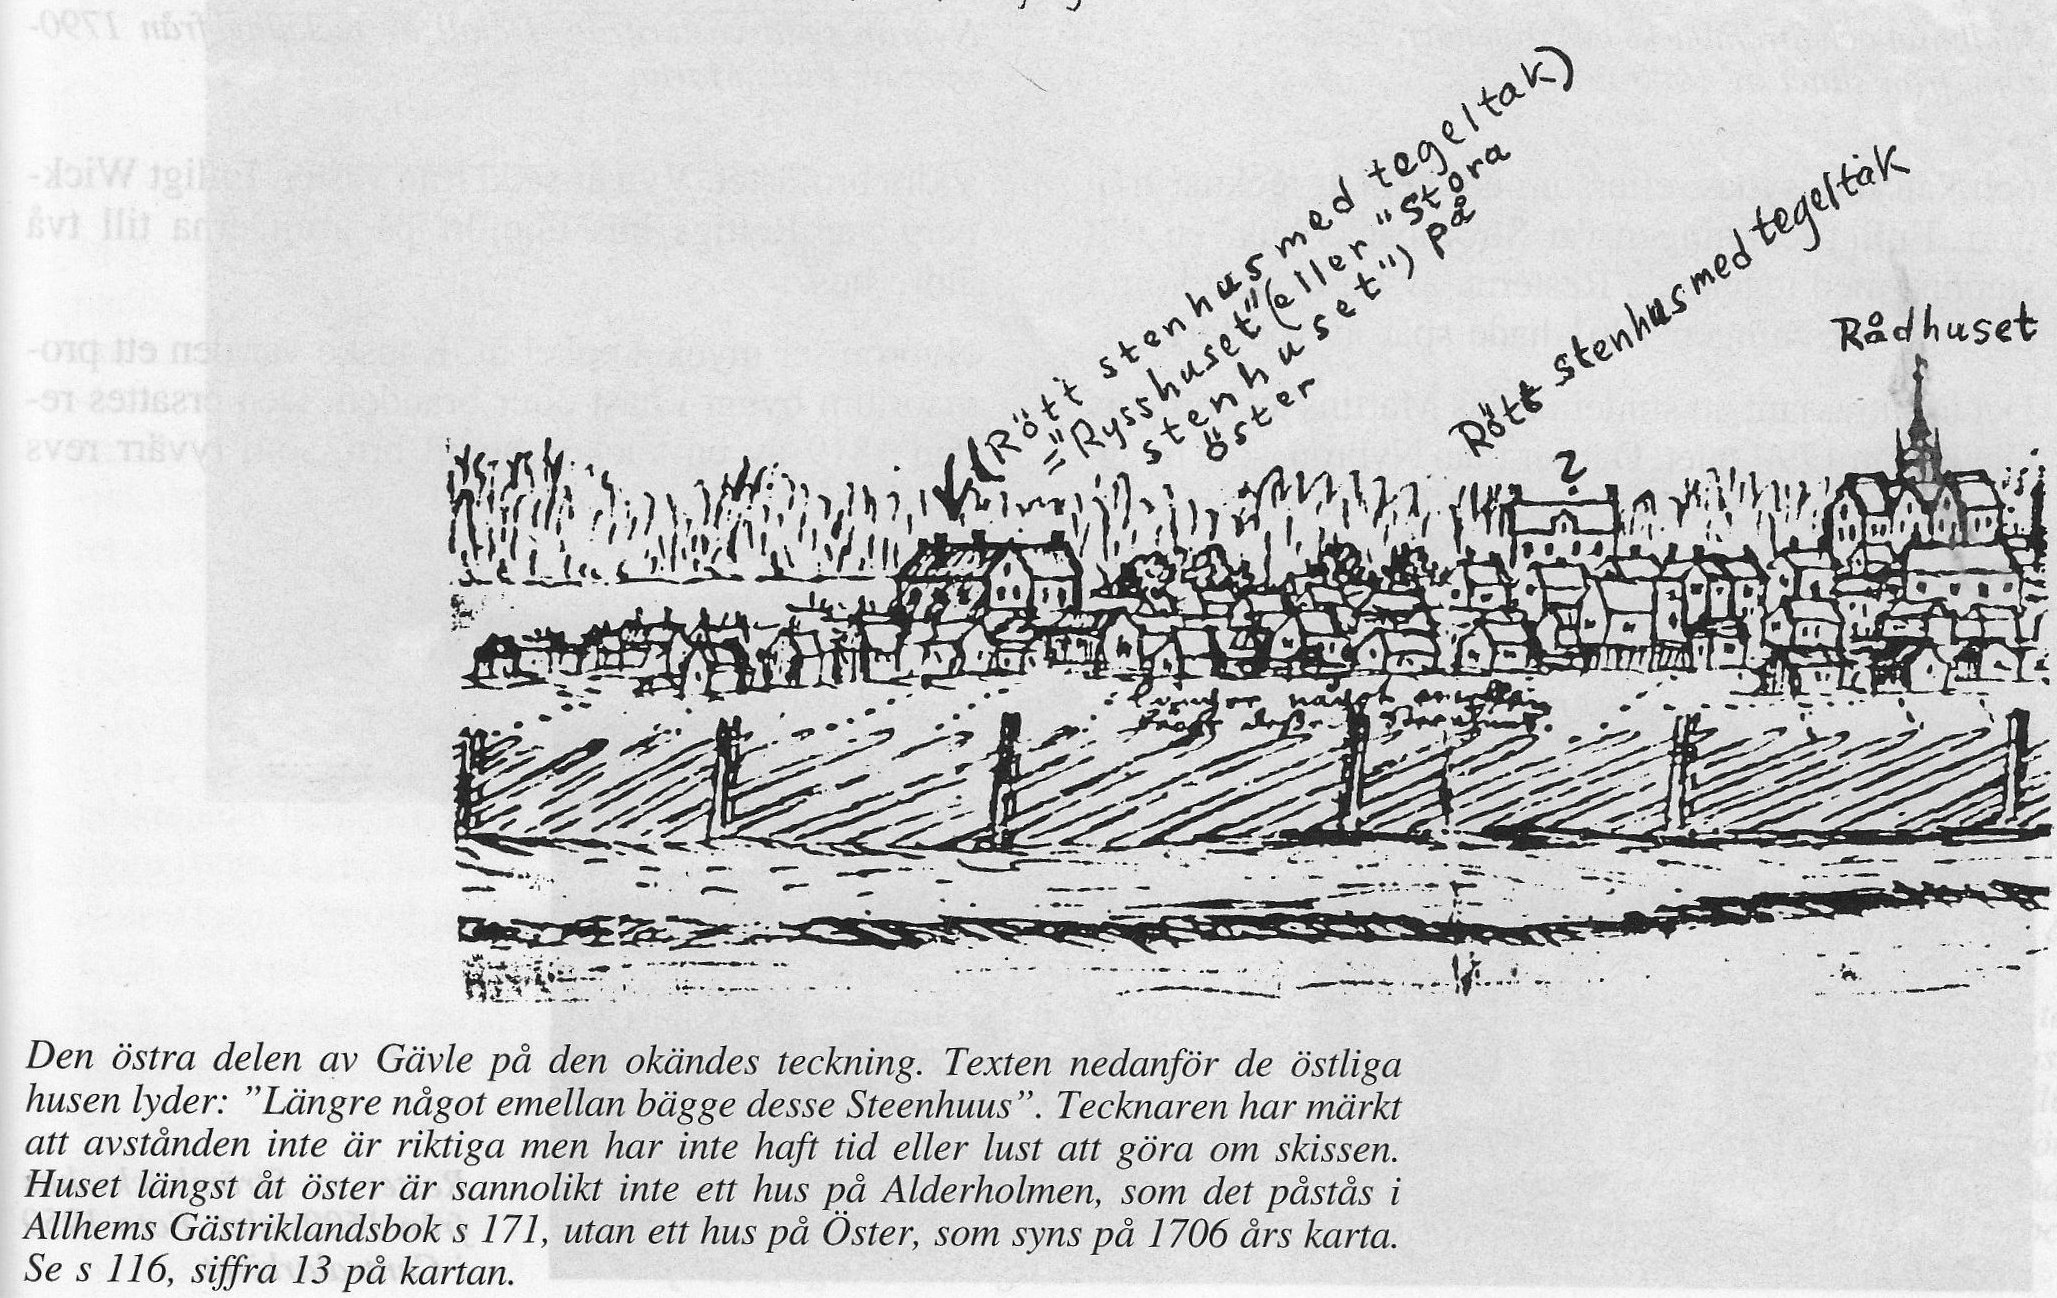 (Rött stenhus med tegeltak)
="Rysshuset" (eller "Stora
stenhuset") på
öster
Rött stenhus med tegeltak
?
Rådhuset
Längre något emellan
bägge desse Steenhuus.
Den östra delen av Gävle på den okändes teckning. Texten nedanför de östliga
husen lyder: ”Längre något emellan bägge desse Steenhuus”. Tecknaren har märkt
att avstånden inte är riktiga men har inte haft tid eller lust att göra om skissen.
Huset längst åt öster är sannolikt inte ett hus på Alderholmen, som det påstås i
Allhems Gästriklandsbok s 171, utan ett hus på Öster, som syns på 1706 års karta.
Se s 116, siffra 13 på kartan.